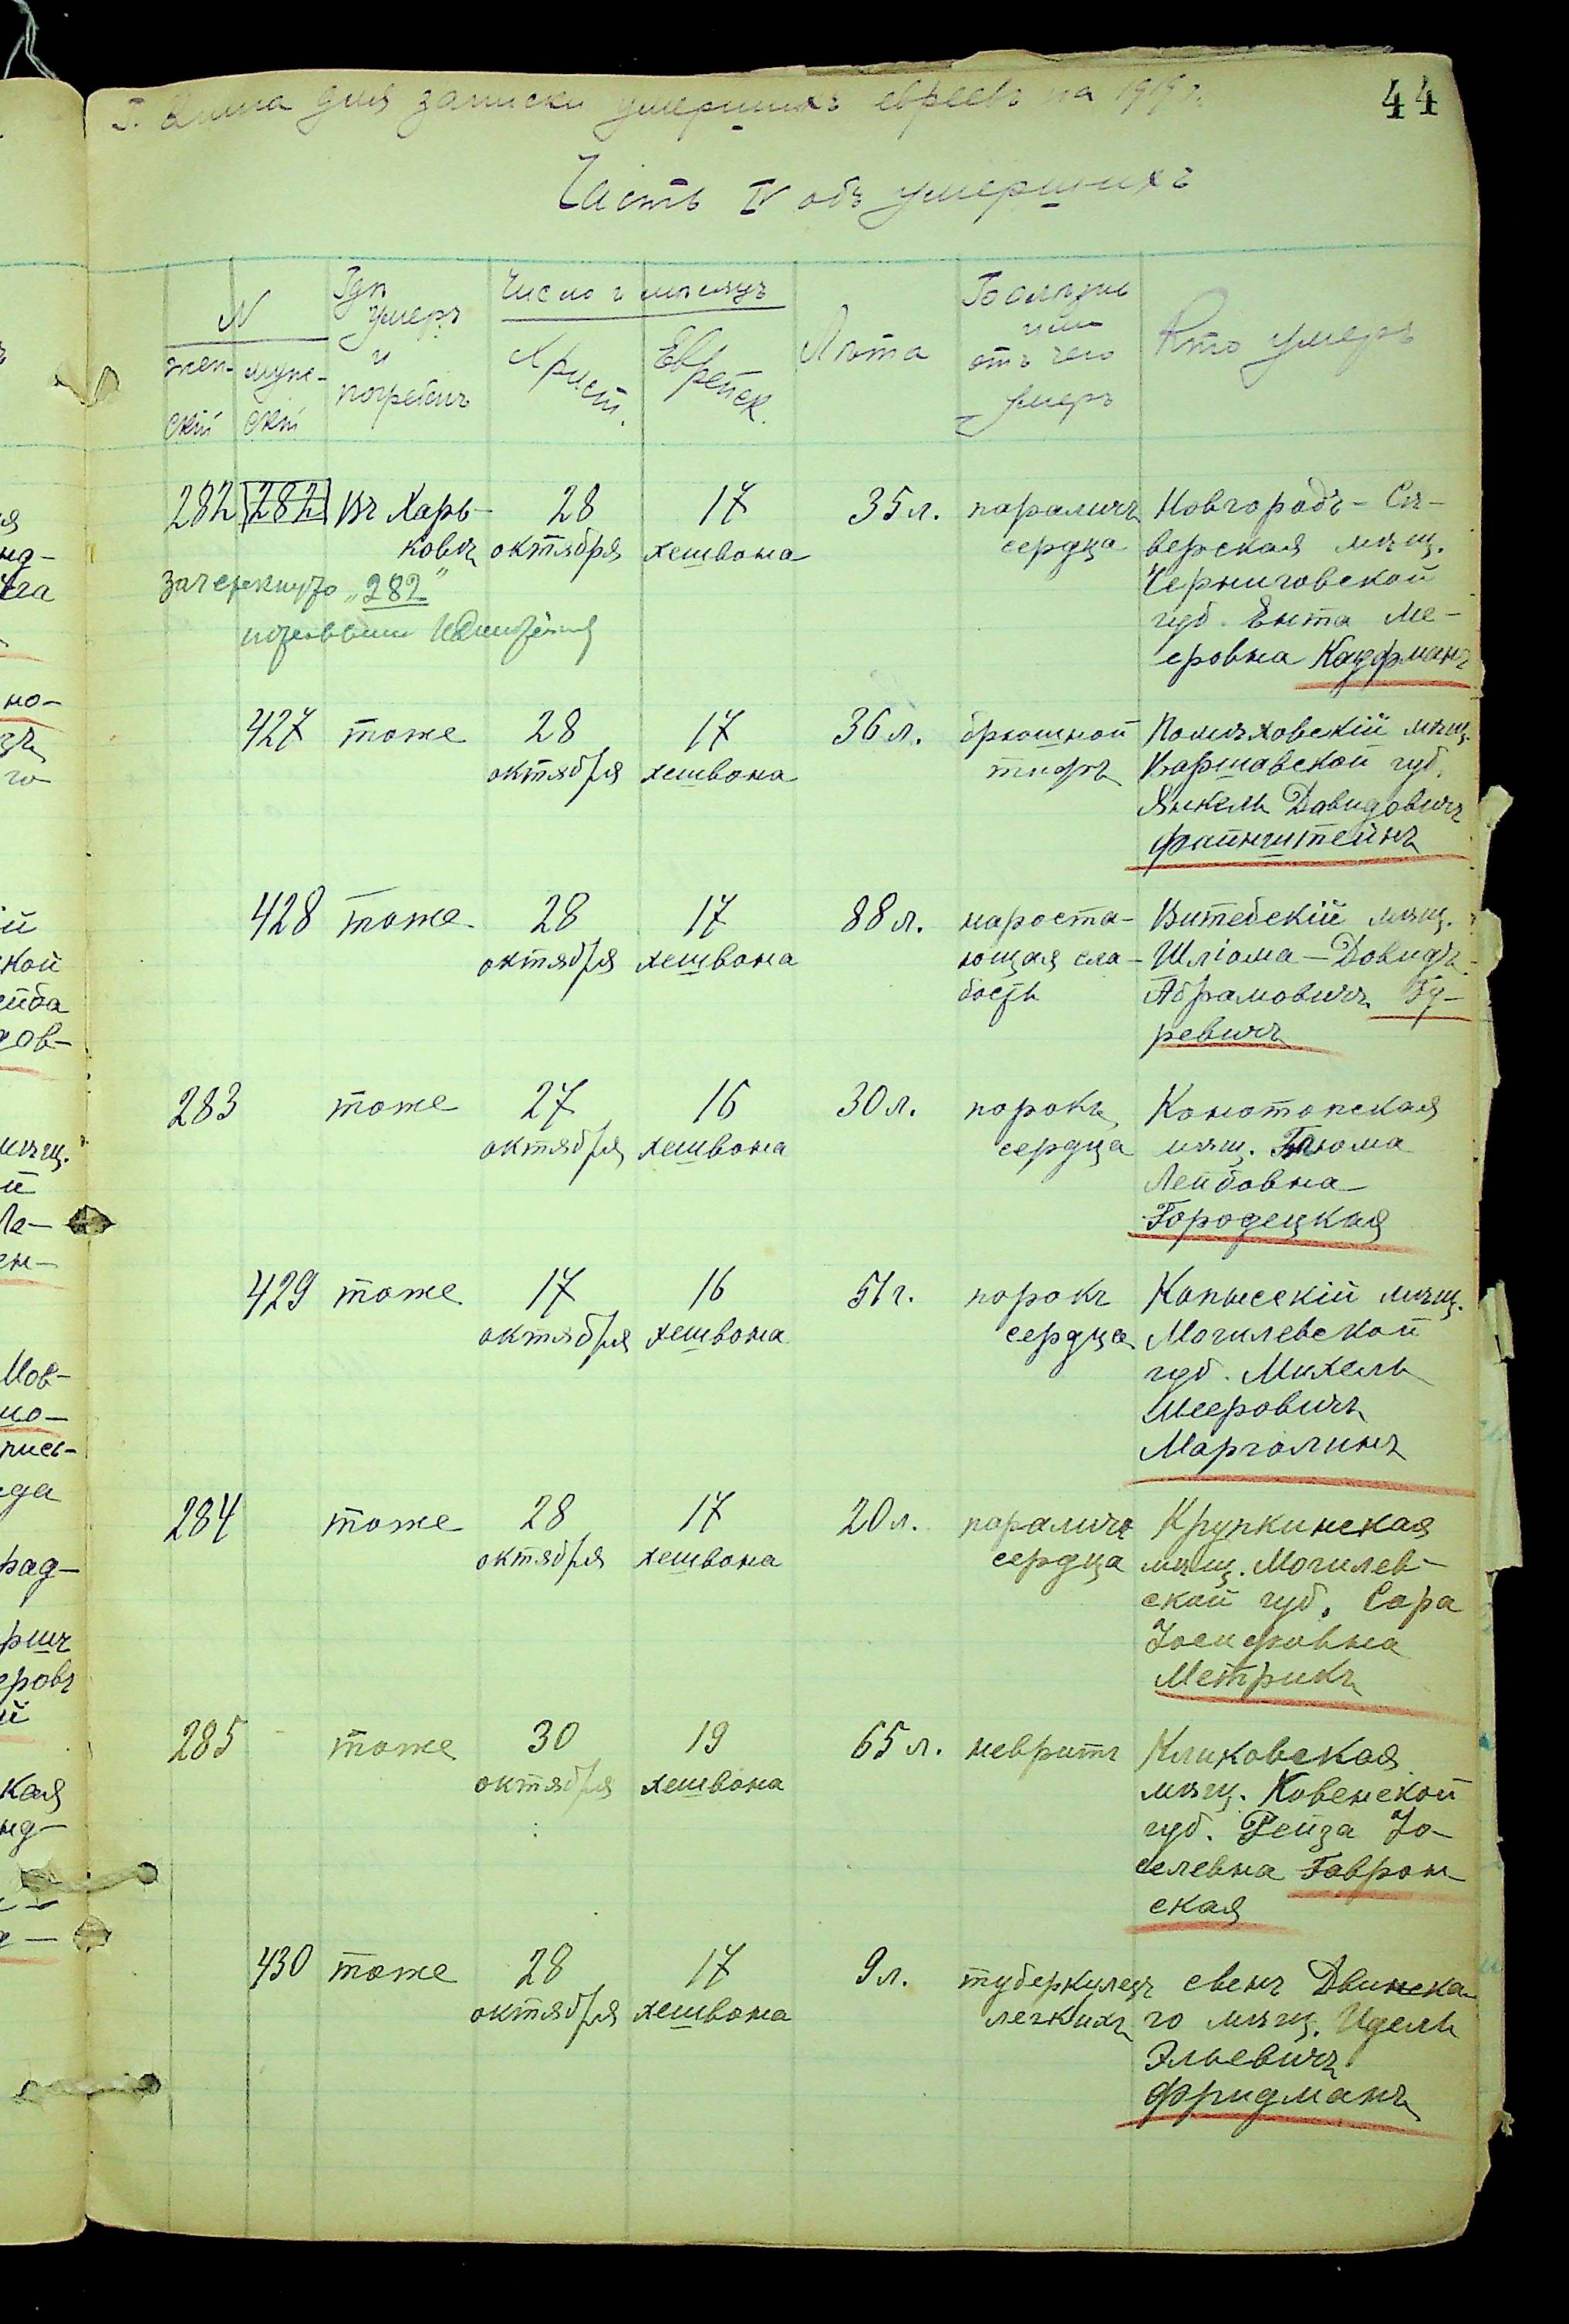 44
для записки умершихъ евреевъ на 1919 г.
Часть IV объ умершихъ
N
жен-
скій
муж-
скій
Гдѣ
умеръ
и
погребенъ
Число и мѣсяцъ
Христ.
Еврейск.
Лѣта
Болѣзнь
или
отъ чего
умеръ
Кто умеръ
282 282 Въ Харь- 28 17 35 л. параличъ Новгородъ-Сѣ-
ковѣ октября хешвона сердца верская мѣщ.
зачеркнуто „282" Черниговской
губ. Ента Ме-
еровна Кауфманъ
427 тоже 28 17 36 л. брюшной мѣщ.
октября хешвона тифъ Варшавской губ.
Янкель Давидовичъ
Файнштейнъ
428 тоже 28 17 88 л. нароста- Витебскій мѣщ.
октября хешвона ющая сла- Шліома-Довидъ
бость Абрамовичъ Гу-
ревичъ
283 тоже 27 16 30 л. порокъ Конотопская
октября хешвона сердца мѣщ.
Лейбовна
Городецкая
429 тоже 17 16 51 г. порокъ Копысскій мѣщ.
октября хешвона сердца Могилевской
губ. Михель
Мееровичъ
Марголинъ
284 тоже 28 17 20 л. параличъ Крупкинская
октября хешвона сердца мѣщ. Могилев-
ской губ. Сара
Іосифовна
Метрикъ
285 тоже 30 19 65 л. невритъ
октября хешвона мѣщ. Ковенской
губ. Рейза Іо-
селевна Гаврон-
ская
430 тоже 28 17 9 л. туберкулезъ сынъ Двинска-
октября хешвона легкихъ го мѣщ. Идель
Эльевичъ
Фридманъ